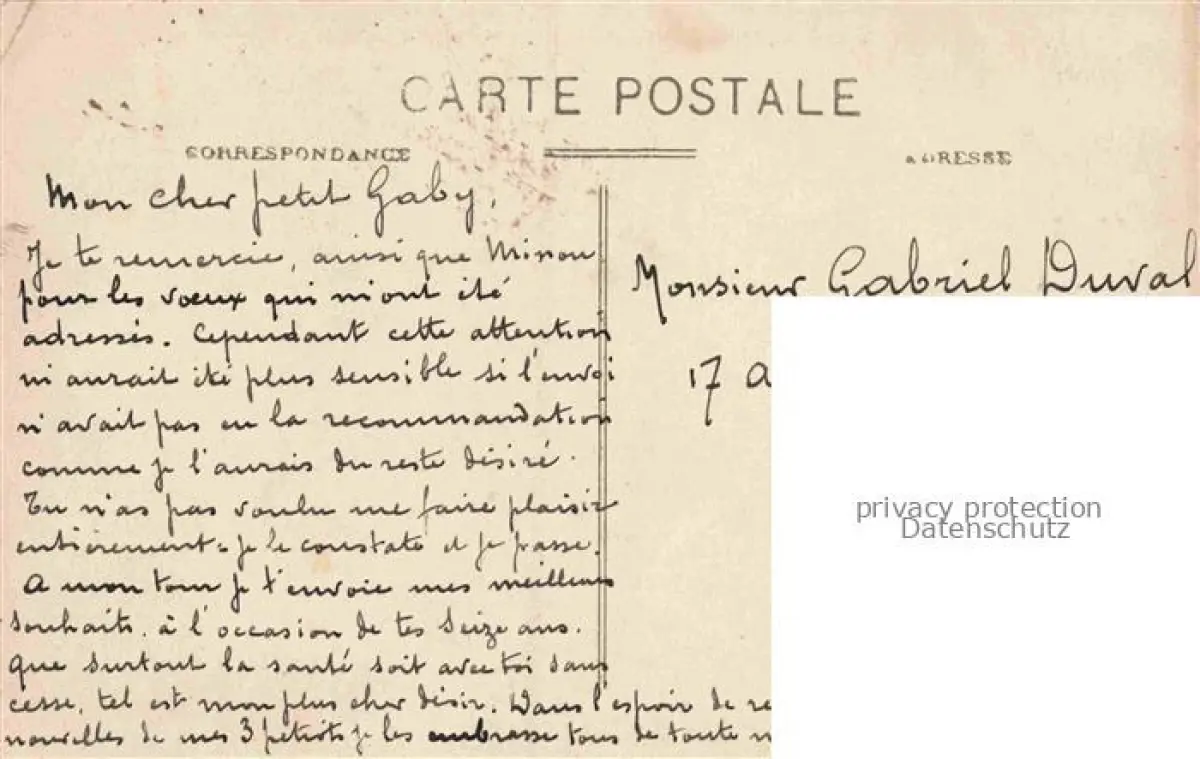 CARTE POSTALE
CORRESPONDANCE
ADRESSE
Mon cher petit Gaby,
Je te remercie, ainsi que Minou
pour les vœux qui m'ont été
adressés. Cependant cette attention
m'aurait été plus sensible si l'envoi
n'avait pas eu la recommandation
comme je l'aurais du reste désiré.
Tu n'as pas voulu me faire plaisir
entièrement = je le constate et je passe.
A mon tour je t'envoie mes meilleurs
souhaits à l'occasion de tes seize ans.
Que surtout la santé soit avec toi sans
cesse, tel est mon plus cher désir. Dans l'espoir de
nouvelles de mes 3 petiots je les embrasse tous de toute
Monsieur Gabriel Duval
17 a
privacy protection
Datenschutz